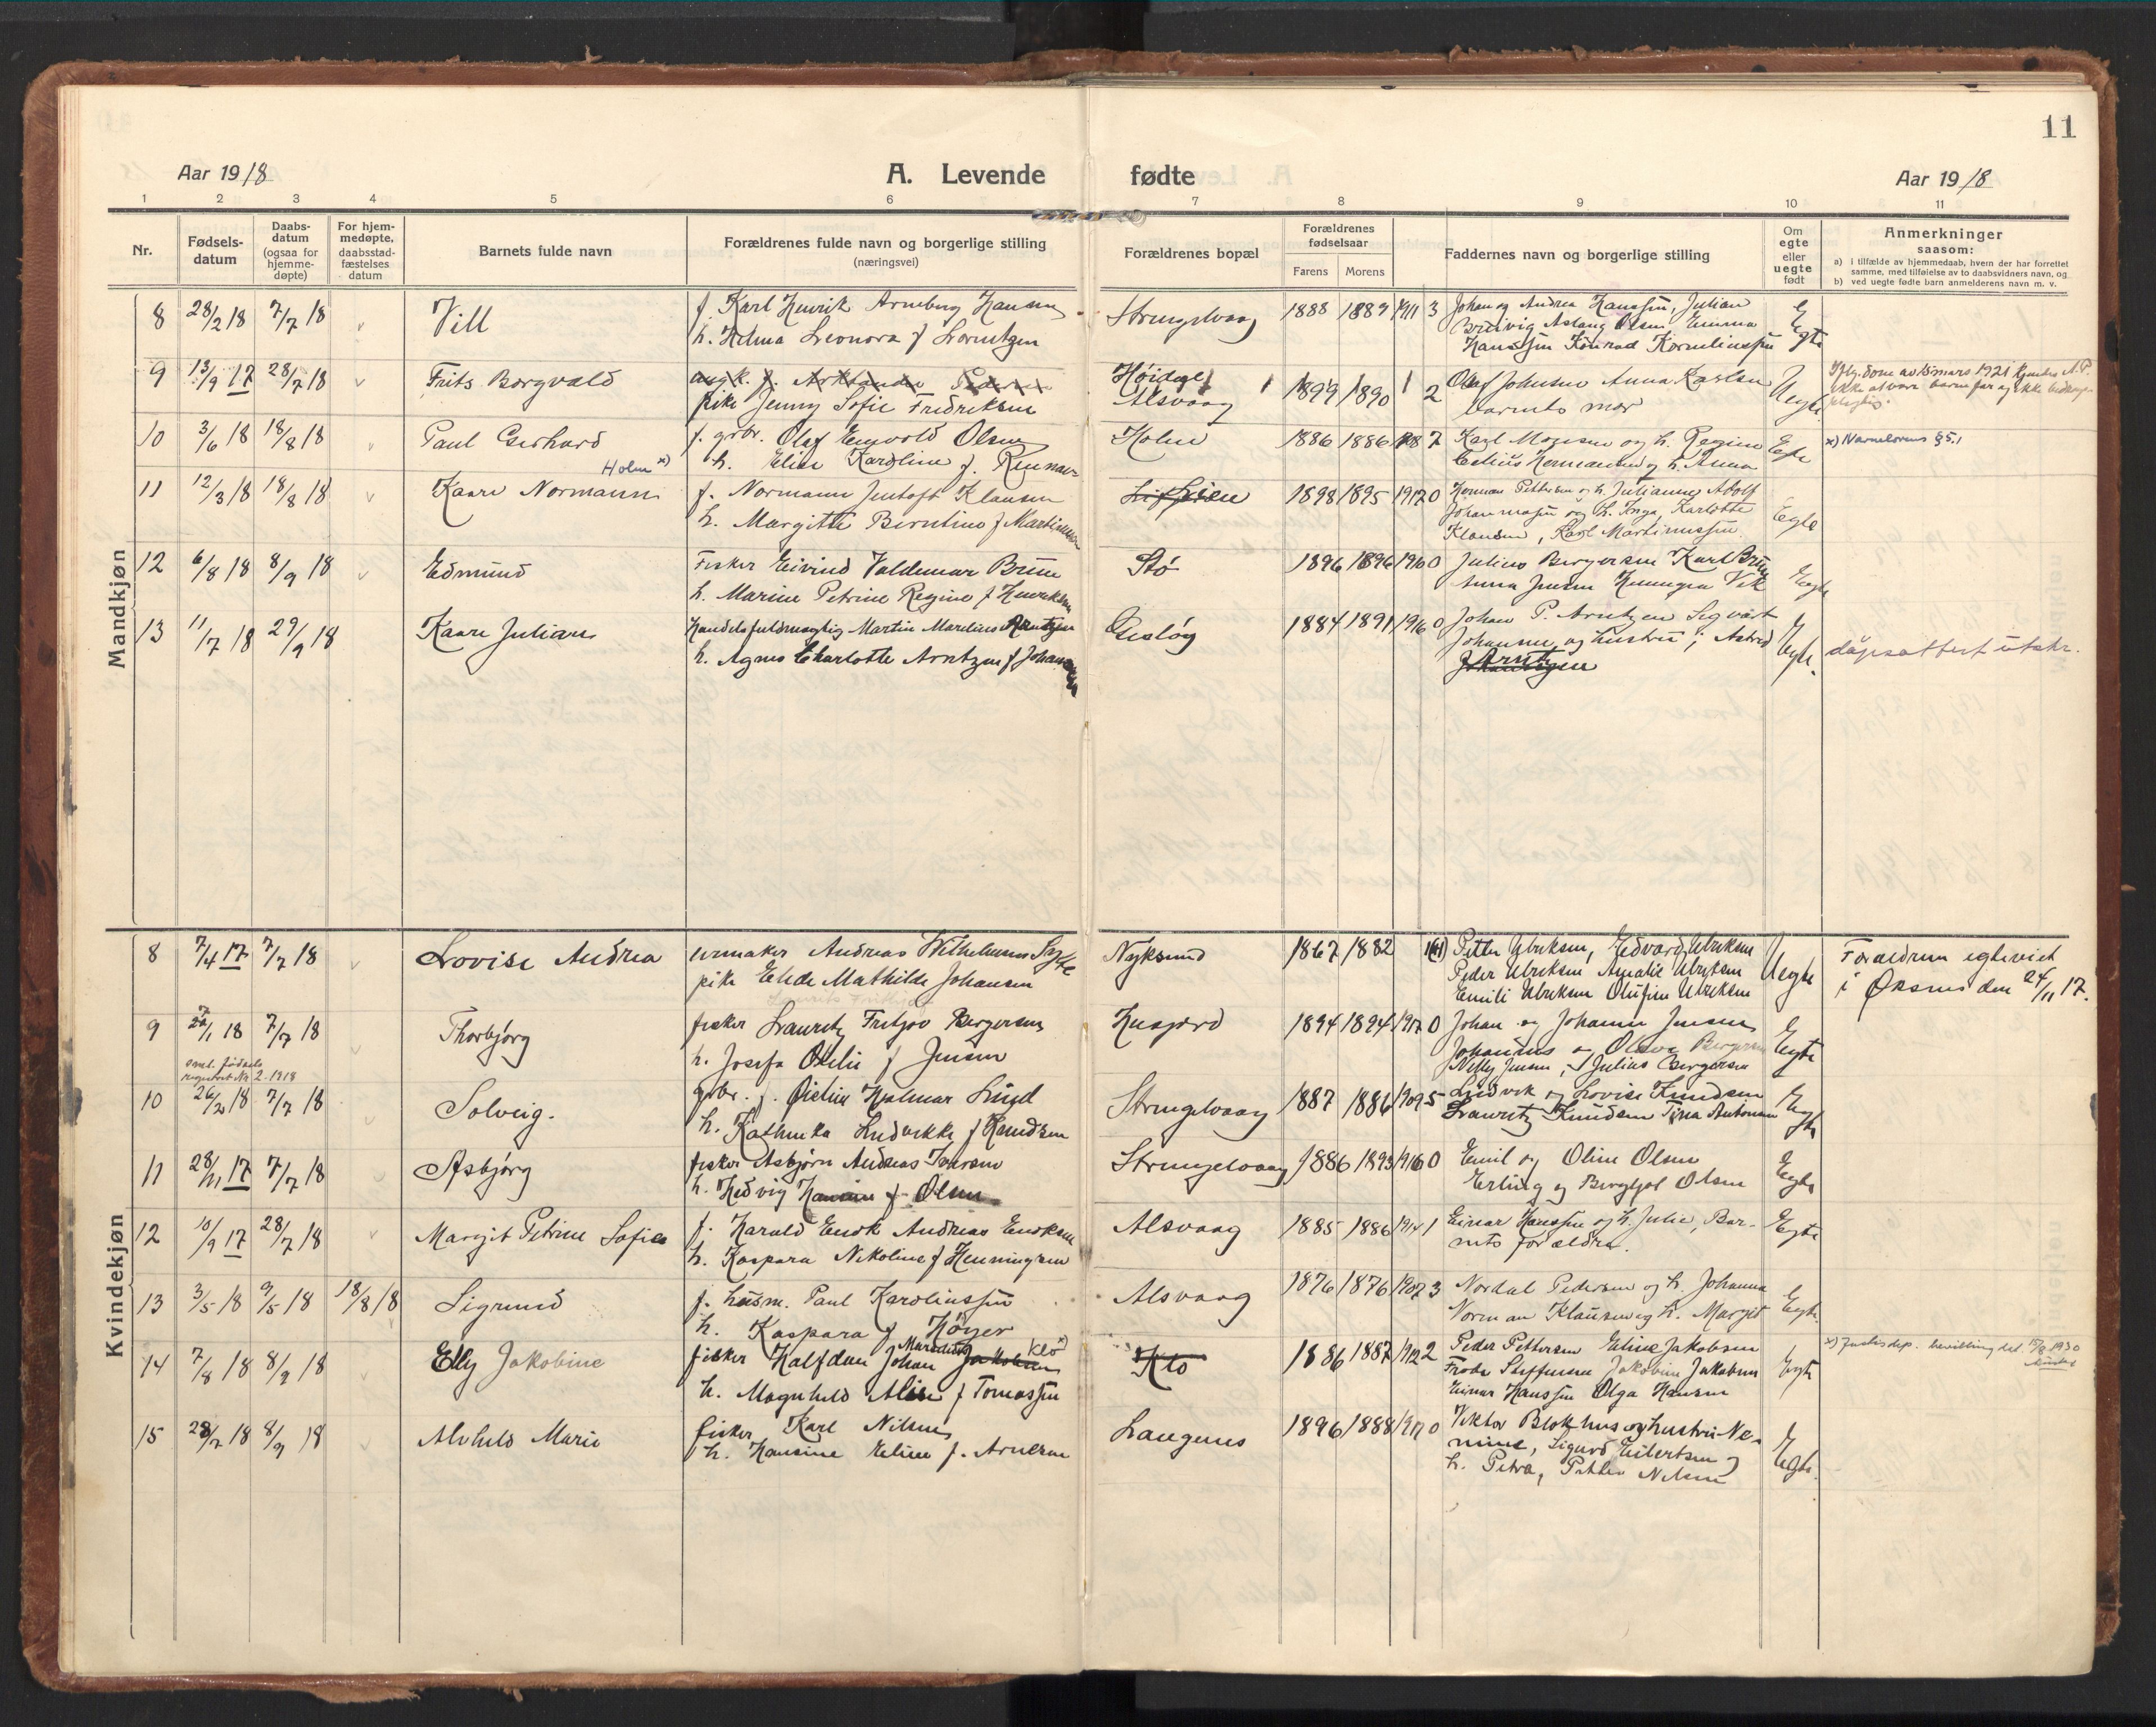 11
Aar 1918
A. Levende fødte
Aar 1918
1 2 3 4 5 6 7 8 9 10 11
Nr.
Fødsels-
datum
Daabs-
datum
(ogsaa for
hjemme-
døpte)
For hjem-
medøpte,
daabsstad-
fæstelses
datum
Barnets fulde navn
Forældrenes fulde navn og borgerlige stilling
(næringsvei)
Forældrenes bopæl
Forældrenes
fødselsaar
Farens Morens
Faddernes navn og borgerlige stilling
Om
egte
eller
uegte
født
Anmerkninger
saasom:
a) i tilfælde av hjemmedaab, hvem der har forrettet
samme, med tilføielse av to daabsvidners navn, og
b) ved uegte fødte barn anmelderens navn m. v.
Mandkjøn
8 28/2 18 7/7 18 Vill
f. Karl Henrik Arneberg Hansen
h. Helma Leonora f Lorentzen
Strengelvaag 1888 1889 1911 3
Johan og Andrea Hanssen, Julian
Aslaug Olsen Emma
Hanssen Konrad Korneliussen
Egte
9 13/9 17 28/7 18 Frits Borgvald
pike Jenny Sofie Fredriksen
Alsvaag 1899 1890 2
Olaf Johnsen Anna Karlsen
barnets mor
Uegte
10 3/6 18 18/8 18 Paul Gerhard
Holm x)
f. grbr. Olaf Engvold Olsen
h. Elise Karoline f.
Holm 1886 1886 7
Karl Mogesen og h. Regine
Hermansen og h. Anna
Egte
x) Navneloven § 5.1
11 12/3 18 18/8 18 Kaare Normann
f. Normann Jentoft Klausen
h. Margitte Berntine f Martinussen
1898 1895 1917 0
Herman Pettersen og h. Julianne Adolf
og h. Inga, Karlotte
Klausen, Karl Martinussen
Egte
12 6/8 18 8/9 18 Edmund
Fisker Eivind Valdemar Brun
h. Marine Petrine Regine f Henriksen
Stø 1896 1896 1916 0
Julius Bergersen Karl Brun
Anna Jensen Vik
Egte
13 11/7 18 29/9 18 Kaare Julian
Handelsfuldmægtig Martin Marelius Arntzen
h. Agnes Charlotte Arntzen f Johansen
Gisløy 1884 1891 1916 0
Johan P. Arntzen Sigvart
Johansen og hustru; Astrid
Arntzen
Egte.
dåpsattest utskr.
Kvindekjøn
8 7/4 17 7/7 18 Lovise Andrea
urmaker Andreas Wilhelmsen
pike Elide Mathilde Johansen
Nyksund 1867 1882
Petter Ulriksen, Edvard Ulriksen
Peder Ulriksen Amalie Ulriksen
Emili Ulriksen Olufine Ulriksen
Uegte
Foræeldrene egteviet
i Øksnes den 24/11 17.
9 1 18 7/7 18 Thorbjørg
fisker Lauritz Fritjov Bergersen
h. Josefa Otelie f Jensen
Husjord 1894 1894 1917 0
Johan og Johanna Jensen
Johannes og Olava Bergersen
Nelly Jensen, Julius Bergersen
Egte
fødsels
registret Nr 2-1918
10 26/2 18 7/7 18 Solveig.
grbr. f. Øistein Hjalmar Lind
h. Kathinka Ludvikke f Knudsen
Strengelvaag 1887 1886 1909 5
Ludvik og Lovise Knudsen
Lauritz Knudsen Tina Antonsen
Egte
11 28/11 17 7/7 18 Asbjørg
fisker Asbjørn Andreas Iversen
h. Hedvig f. Olsen
Strengelvaag 1886 1893 1916 0
Emil og Oline Olsen
Erling og Bergljot Olsen
Egte
12 10/9 17 28/7 18 Margit Petrine Sofie
f. Harald Enok Andreas Enoksen
h. Kaspara Nikoline f Henningsen
Alsvaag 1885 1886 1914 1
Einar Hanssen og h. Julie, Bar-
nets forældre.
Egte
13 3/5 18 9/5 18 18/8 18 Sigrund
f. husm. Paul Karoliussen
h. Kaspara f Høyer
Alsvaag 1876 1876 1907 3
Nordal Pedersen og h. Johanna
Norman Klausen og h. Margit
Egte
14 7/8 18 8/9 18 Elly Jakobine
Klo x)
fisker Halfdan Johan Marelius Jakobsen
h. Magnhild Alise f Tomassen
Klo 1886 1887 1912 2
Peder Pettersen Eline Jakobsen
Frode Steffensen Jakobine Jakobsen
Einar Hanssen Olga Hansen
Egte
x) Justisdep. bevilling dat. 1930
15 28/7 18 8/9 18 Alvhild Marie
fisker Karl Nilsen
h. Hansine Eline f. Arnesen
Langenes 1896 1888 1917 0
Viktor Blokhus og hustru Ne-
mine, Sigurd Eilertsen og
h. Petra, Petter Nilsen
Egte.